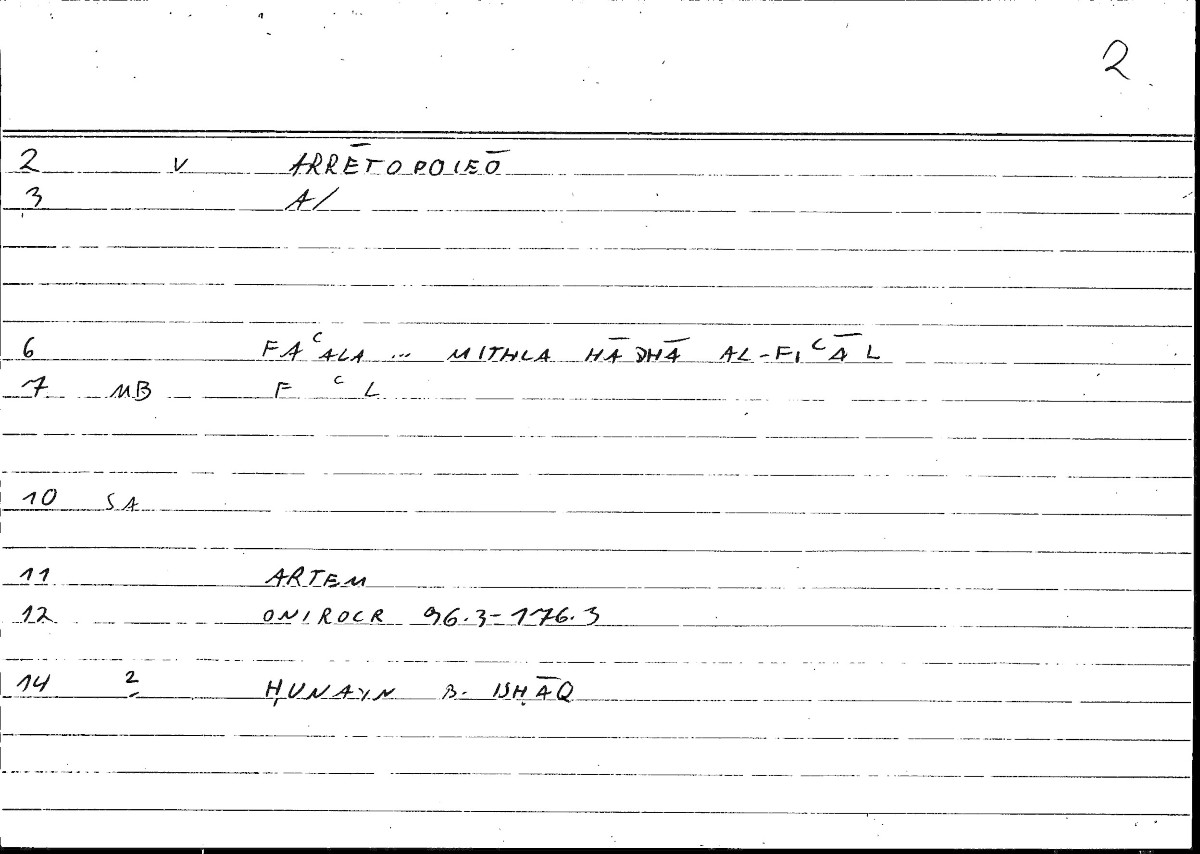 2
2 V ARRĒTOPOIEŌ
3 A/
6 FAᶜALA ... MITHLA HĀDHĀ AL-FIᶜĀL
7 MB F ᶜ L
10 SA
11 ARTEM
12 ONIROCR 96.3-176.3
14 2 ḤUNAYN B. ISḤĀQ